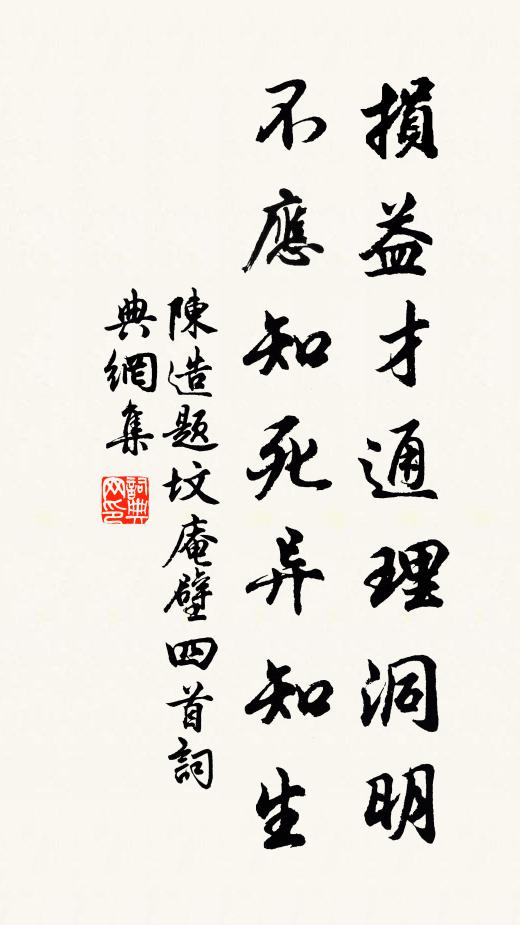 損益才通理洞明
不應知死异知生
陳造題坟庵壁四首詞
典網集
詞典
网印